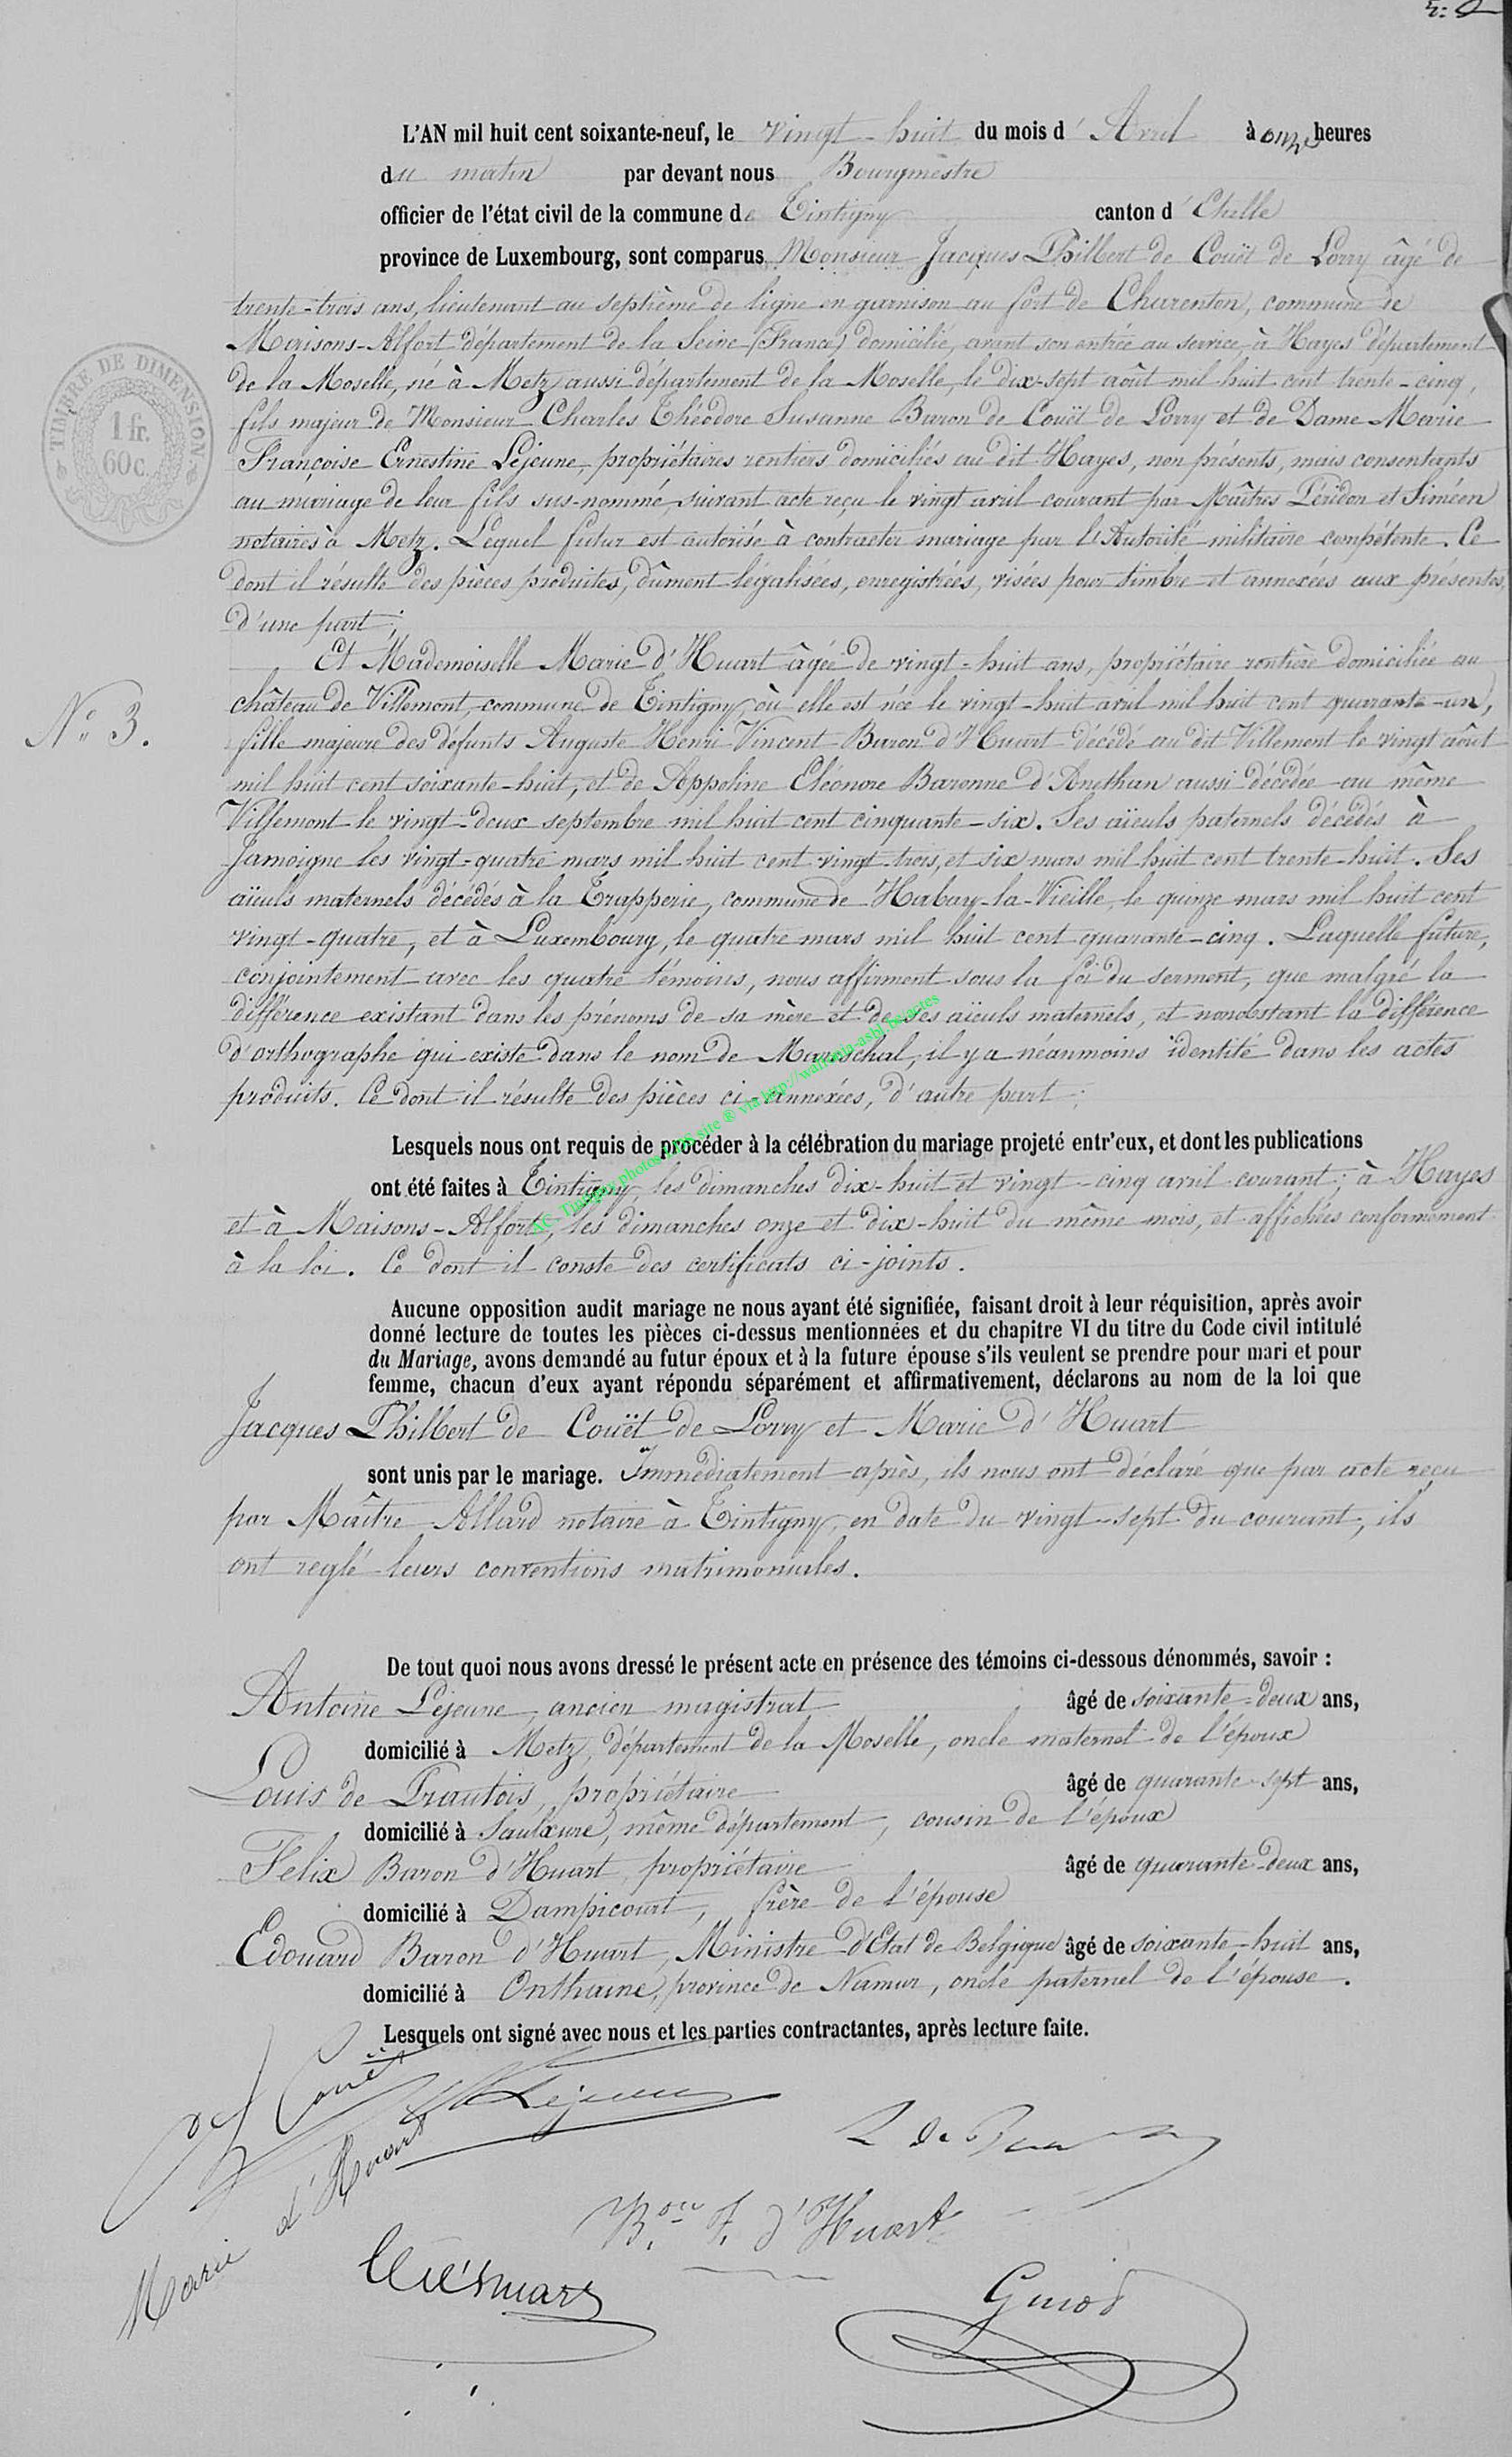 L'AN mil huit cent soixante-neuf, le vingt-huit du mois d'Avril à onze heures
du matin par devant nous Bourgmestre
officier de l'état civil de la commune de Tintigny canton d'Etalle
province de Luxembourg, sont comparus Monsieur Jacques Philbert de Couët de Lorry âgé de
trente-trois ans, lieutenant au septième de ligne en garnison au fort de Charenton, commune de
Maisons-Alfort département de la Seine (France) domicilié, avant son entrée au service, à Hayes département
de la Moselle, né à Metz aussi département de la Moselle, le dix-sept août mil huit cent trente-cinq,
fils majeur de Monsieur Charles Théodore Susanne Baron de Couët de Lorry et de Dame Marie
Françoise Ernestine Lejeune, propriétaires rentiers domiciliés au dit Hayes, non présents, mais consentants
au mariage de leur fils sus-nommé, suivant acte reçu le vingt avril courant par Maîtres Péridon et Siméon
notaires à Metz. Lequel futur est autorisé à contracter mariage par l'Autorité militaire compétente. Ce
dont il résulte des pièces produites, dûment légalisées, enregistrées, visées pour timbre et annexées aux présentes,
d'une part;
TIMBRE DE DIMENSION
1 fr.
60 c.
Et Mademoiselle Marie d'Huart âgée de vingt-huit ans, propriétaire rentière domiciliée au
château de Villemont, commune de Tintigny, où elle est née le vingt-huit avril mil huit cent quarante-un,
N° 3.
fille majeure des défunts Auguste Henri Vincent Baron d'Huart décédé au dit Villemont le vingt août
mil huit cent soixante-huit, et de Appoline Eléonore Baronne d'Anethan aussi décédée au même
Villemont le vingt-deux septembre mil huit cent cinquante-six. Ses aïeuls paternels décédés à
Jamoigne les vingt-quatre mars mil huit cent vingt-trois, et six mars mil huit cent trente-huit. Ses
aïeuls maternels décédés à la Trapperie, commune de Habay-la-Vieille, le quinze mars mil huit cent
vingt-quatre, et à Luxembourg, le quatre mars mil huit cent quarante-cinq. Laquelle future,
conjointement avec les quatre témoins, nous affirment sous la foi du serment, que malgré la
différence existant dans les prénoms de sa mère et de ses aïeuls maternels, et nonobstant la différence
d'orthographe qui existe dans le nom de Mareschal, il y a néanmoins identité dans les actes
produits. Ce dont il résulte des pièces ci-annexées, d'autre part;
Lesquels nous ont requis de procéder à la célébration du mariage projeté entr'eux, et dont les publications
ont été faites à Tintigny, les dimanches dix-huit et vingt-cinq avril courant; à Hayes
et à Maisons-Alfort, les dimanches onze et dix-huit du même mois, et affichées conformément
à la loi. Ce dont il conste des certificats ci-joints.
Aucune opposition audit mariage ne nous ayant été signifiée, faisant droit à leur réquisition, après avoir
donné lecture de toutes les pièces ci-dessus mentionnées et du chapitre VI du titre du Code civil intitulé
du Mariage, avons demandé au futur époux et à la future épouse s'ils veulent se prendre pour mari et pour
femme, chacun d'eux ayant répondu séparément et affirmativement, déclarons au nom de la loi que
Jacques Philbert de Couët de Lorry et Marie d'Huart
sont unis par le mariage. Immédiatement après, ils nous ont déclaré que par acte reçu
par Maître Allard notaire à Tintigny, en date du vingt-sept du courant, ils
ont reglé leurs conventions matrimoniales.
De tout quoi nous avons dressé le présent acte en présence des témoins ci-dessous dénommés, savoir :
Antoine Lejeune, ancien magistrat âgé de soixante-deux ans,
domicilié à Metz, département de la Moselle, oncle maternel de l'époux
Louis de Prautois, propriétaire âgé de quarante-sept ans,
domicilié à Saulxure, même département, cousin de l'époux
Felix Baron d'Huart, propriétaire âgé de quarante-deux ans,
domicilié à Dampicourt, frère de l'épouse
Edouard Baron d'Huart, Ministre d'Etat de Belgique âgé de soixante-huit ans,
domicilié à Onthaine, province de Namur, oncle paternel de l'épouse.
Lesquels ont signé avec nous et les parties contractantes, après lecture faite.
Couët
Lejeune
L de
Marie d'Huart
Bon F. d'Huart